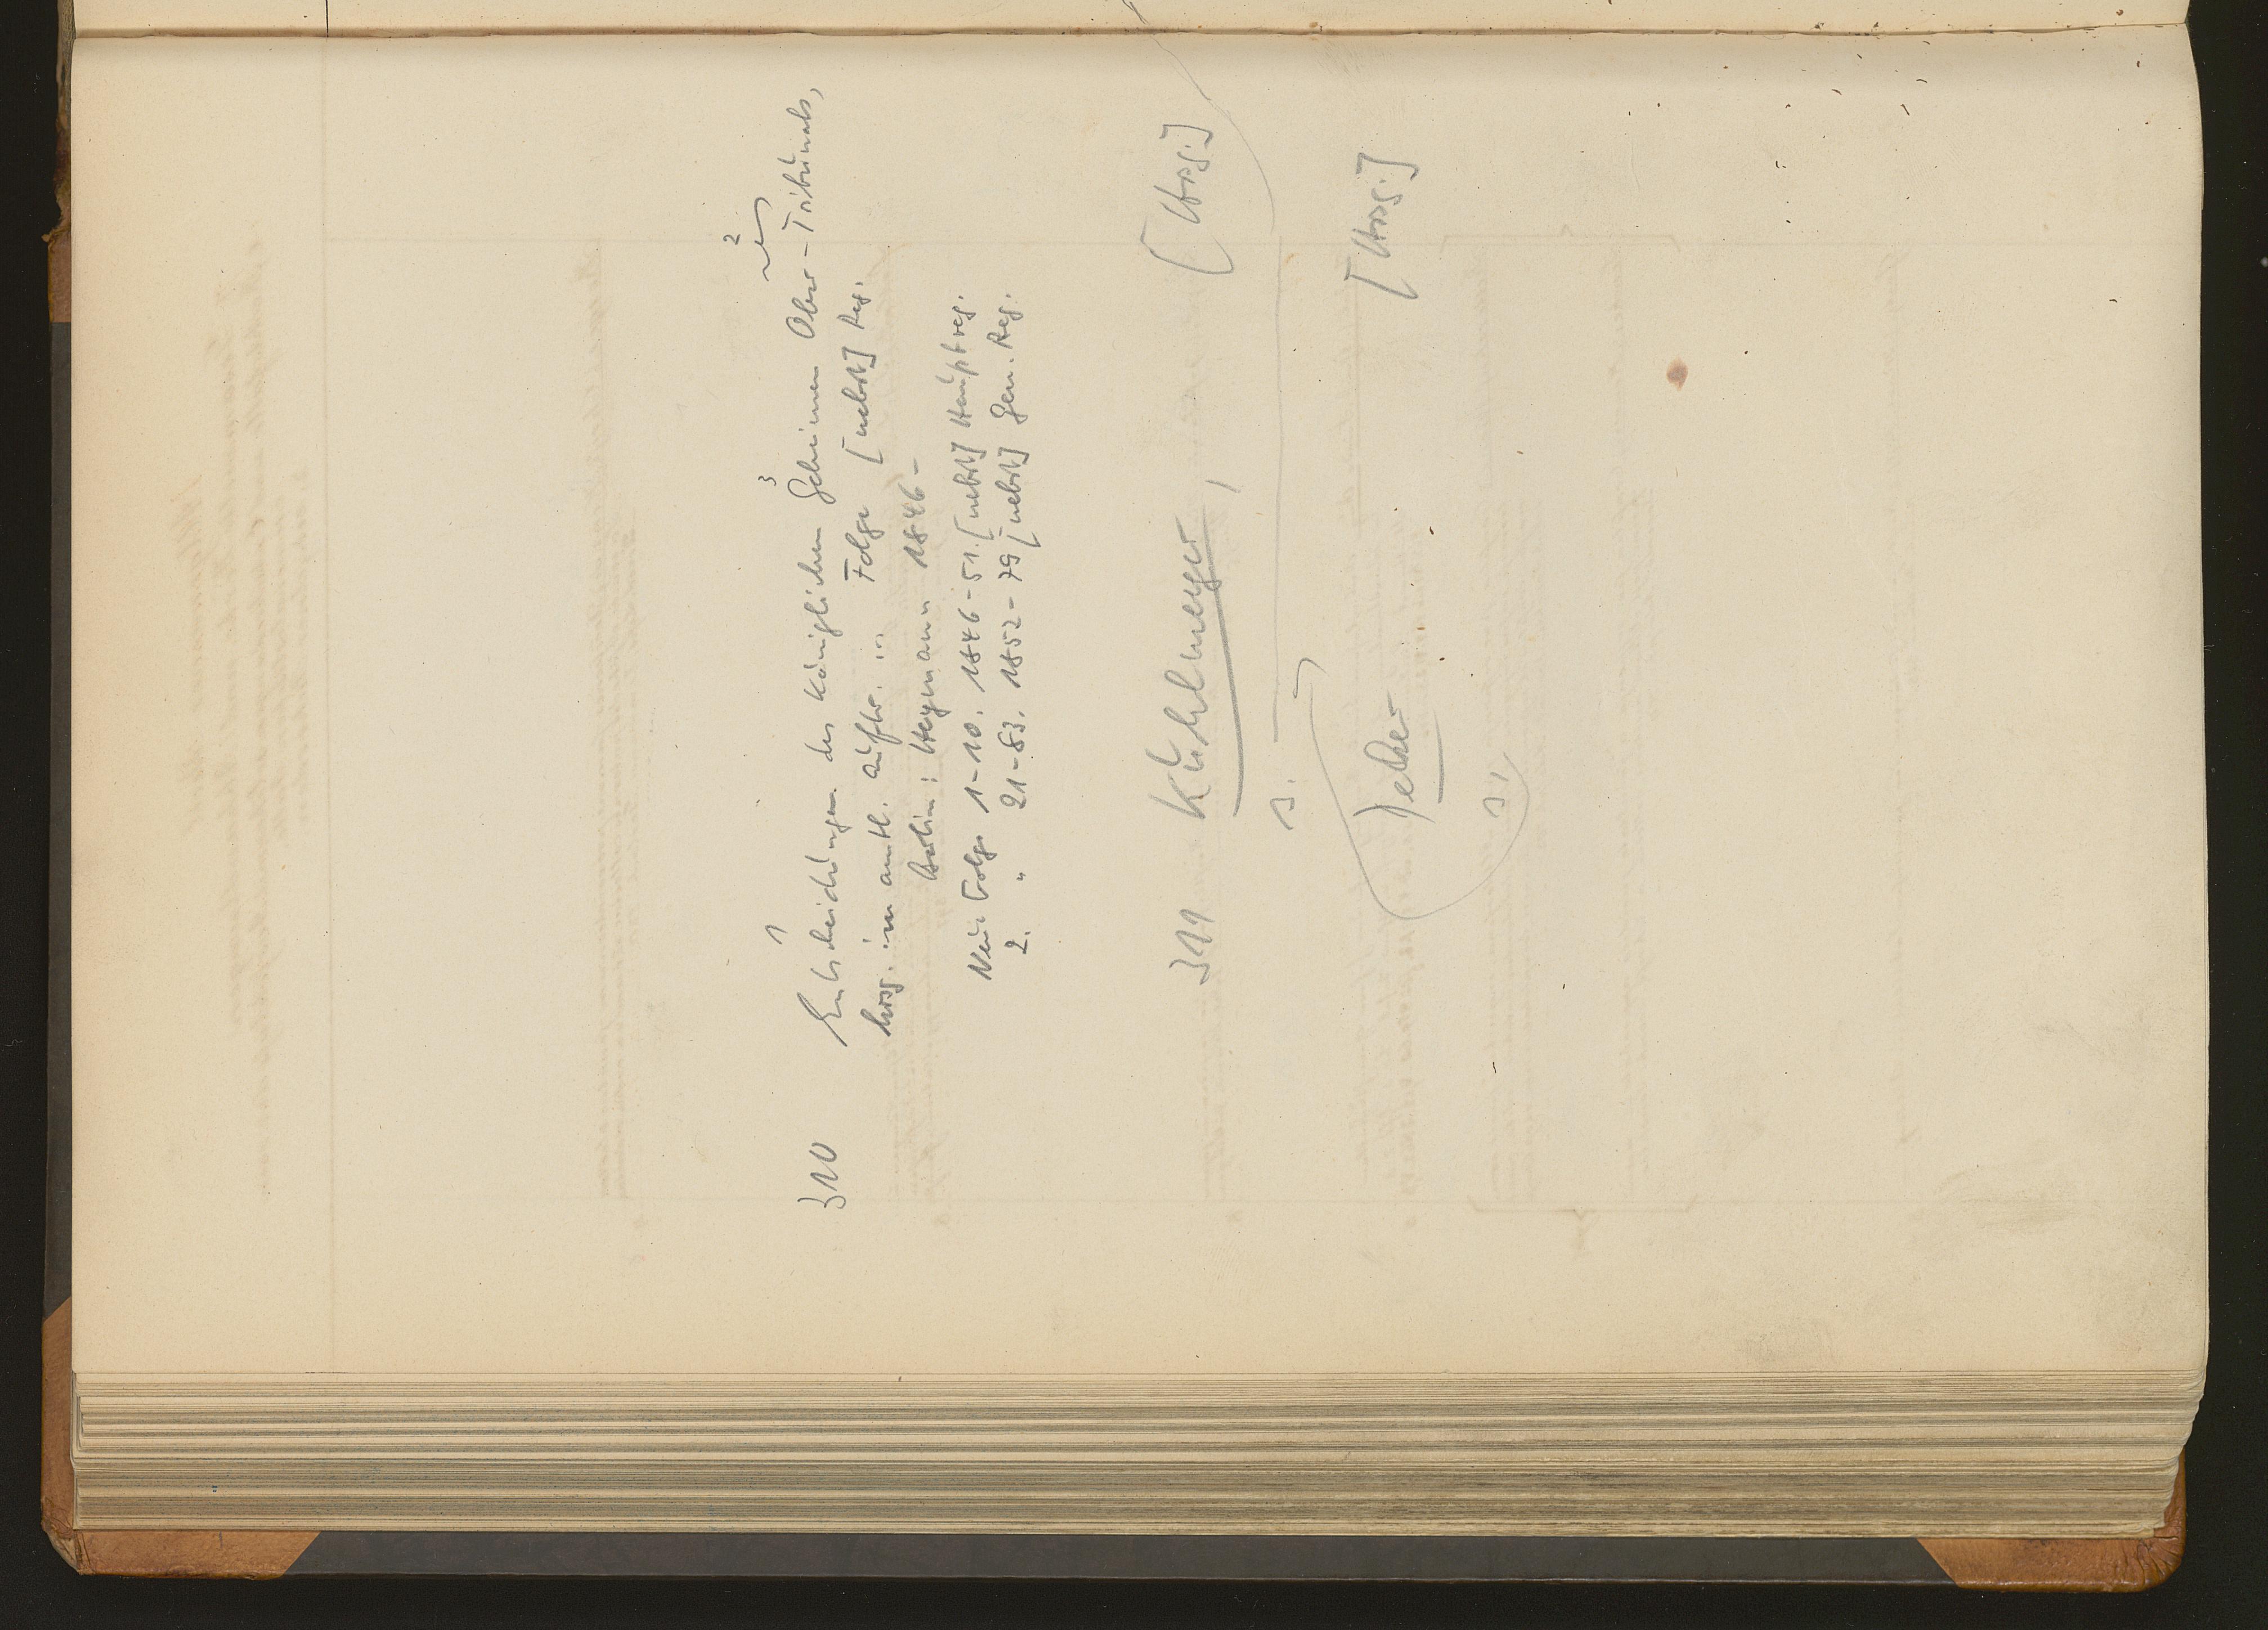 1 3 2
310 Entscheidungen des Königlichen Geheimen Ober-Tribunals,
hrsg. im amtl. Auftr. ... Folge [nebst] Reg.
Berlin: Heymann 1846-
Neue Folge 1-10. 1846-51. [nebst] Hauptreg.
2. " 21-83. 1852-79 [nebst] Gen. Reg.
311 Kuhlmeyer, [Hrsg.]
s.
Decker [Hrsg.]
s.